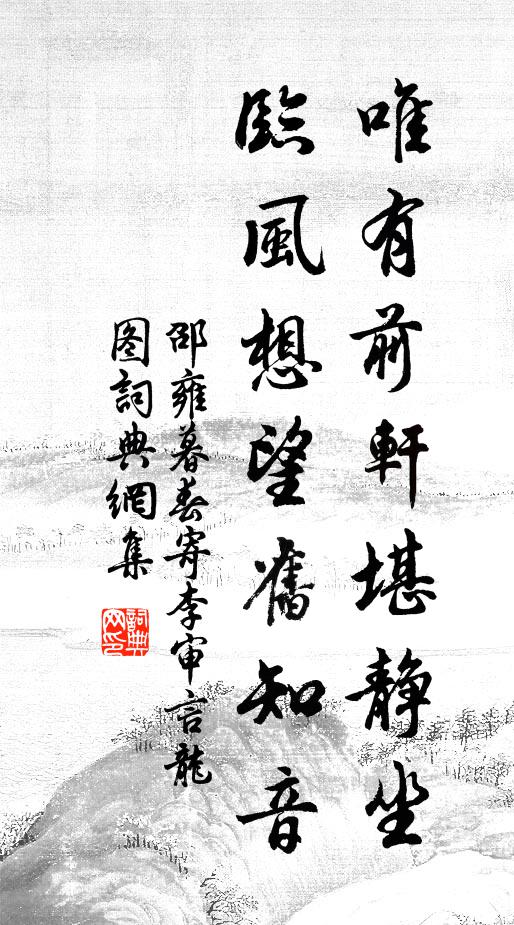 唯有前軒堪靜坐
臨風想望舊知音
邵雍暮春寄李审言龍
图詞典網集
詞典
网印